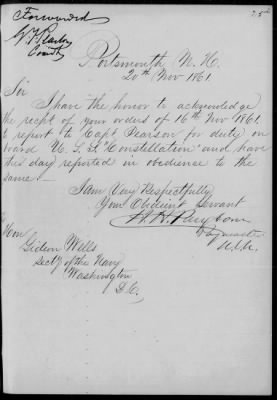 Forwarded
Comdt
25
Portsmouth N. H.
20th Nov 1861
Sir
I have the honor to acknowledge
the recpt of your orders of 16th Nov 1861
to report to Capt. Pearson for duty on
board U. S. S. "Constellation" and have
this day reported in obedience to the
same.—
I am Very Respectfully
Your Obedient Servant
Paymaster
U.S.N.
Hon
Gideon Wells
Secty of the Navy
Washington
D.C.